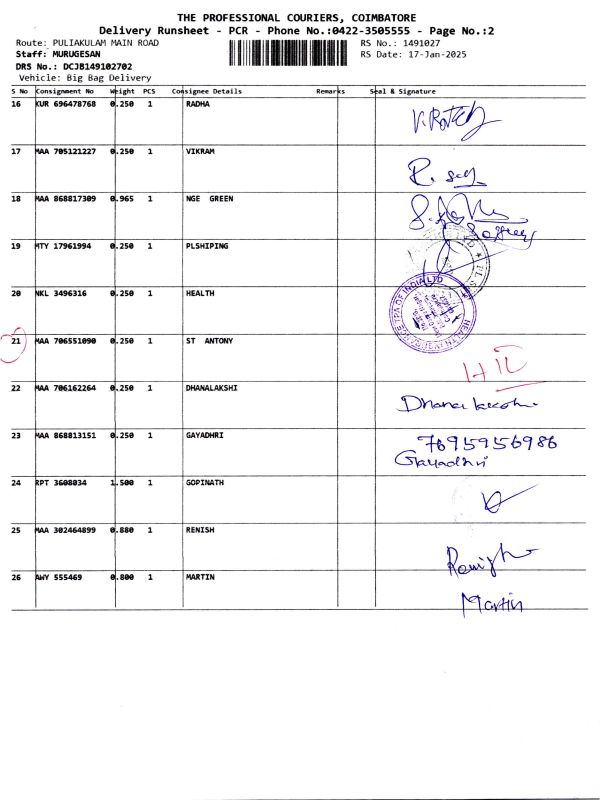 THE PROFESSIONAL COURIERS, COIMBATORE
Delivery Runsheet - PCR - Phone No.:0422-3505555 - Page No.:2
Route: PULIAKULAM MAIN ROAD RS No.: 1491027
Staff: MURUGESAN RS Date: 17-Jan-2025
DRS No.: DCJB149102702
Vehicle: Big Bag Delivery
S No Consignment No Weight PCS Consignee Details Remarks Seal & Signature
16 KUR 696478768 0.250 1 RADHA
17 MAA 705121227 0.250 1 VIKRAM
18 MAA 868817309 0.965 1 NGE GREEN
19 MTY 17961994 0.250 1 PLSHIPING
20 NKL 3496316 0.250 1 HEALTH
21 MAA 706551090 0.250 1 ST ANTONY
22 MAA 706162264 0.250 1 DHANALAKSHI
23 MAA 868813151 0.250 1 GAYADHRI 7695956986
Gayadhri
24 RPT 3608034 1.500 1 GOPINATH
25 MAA 302464899 0.880 1 RENISH
26 AWY 555469 0.800 1 MARTIN Martin